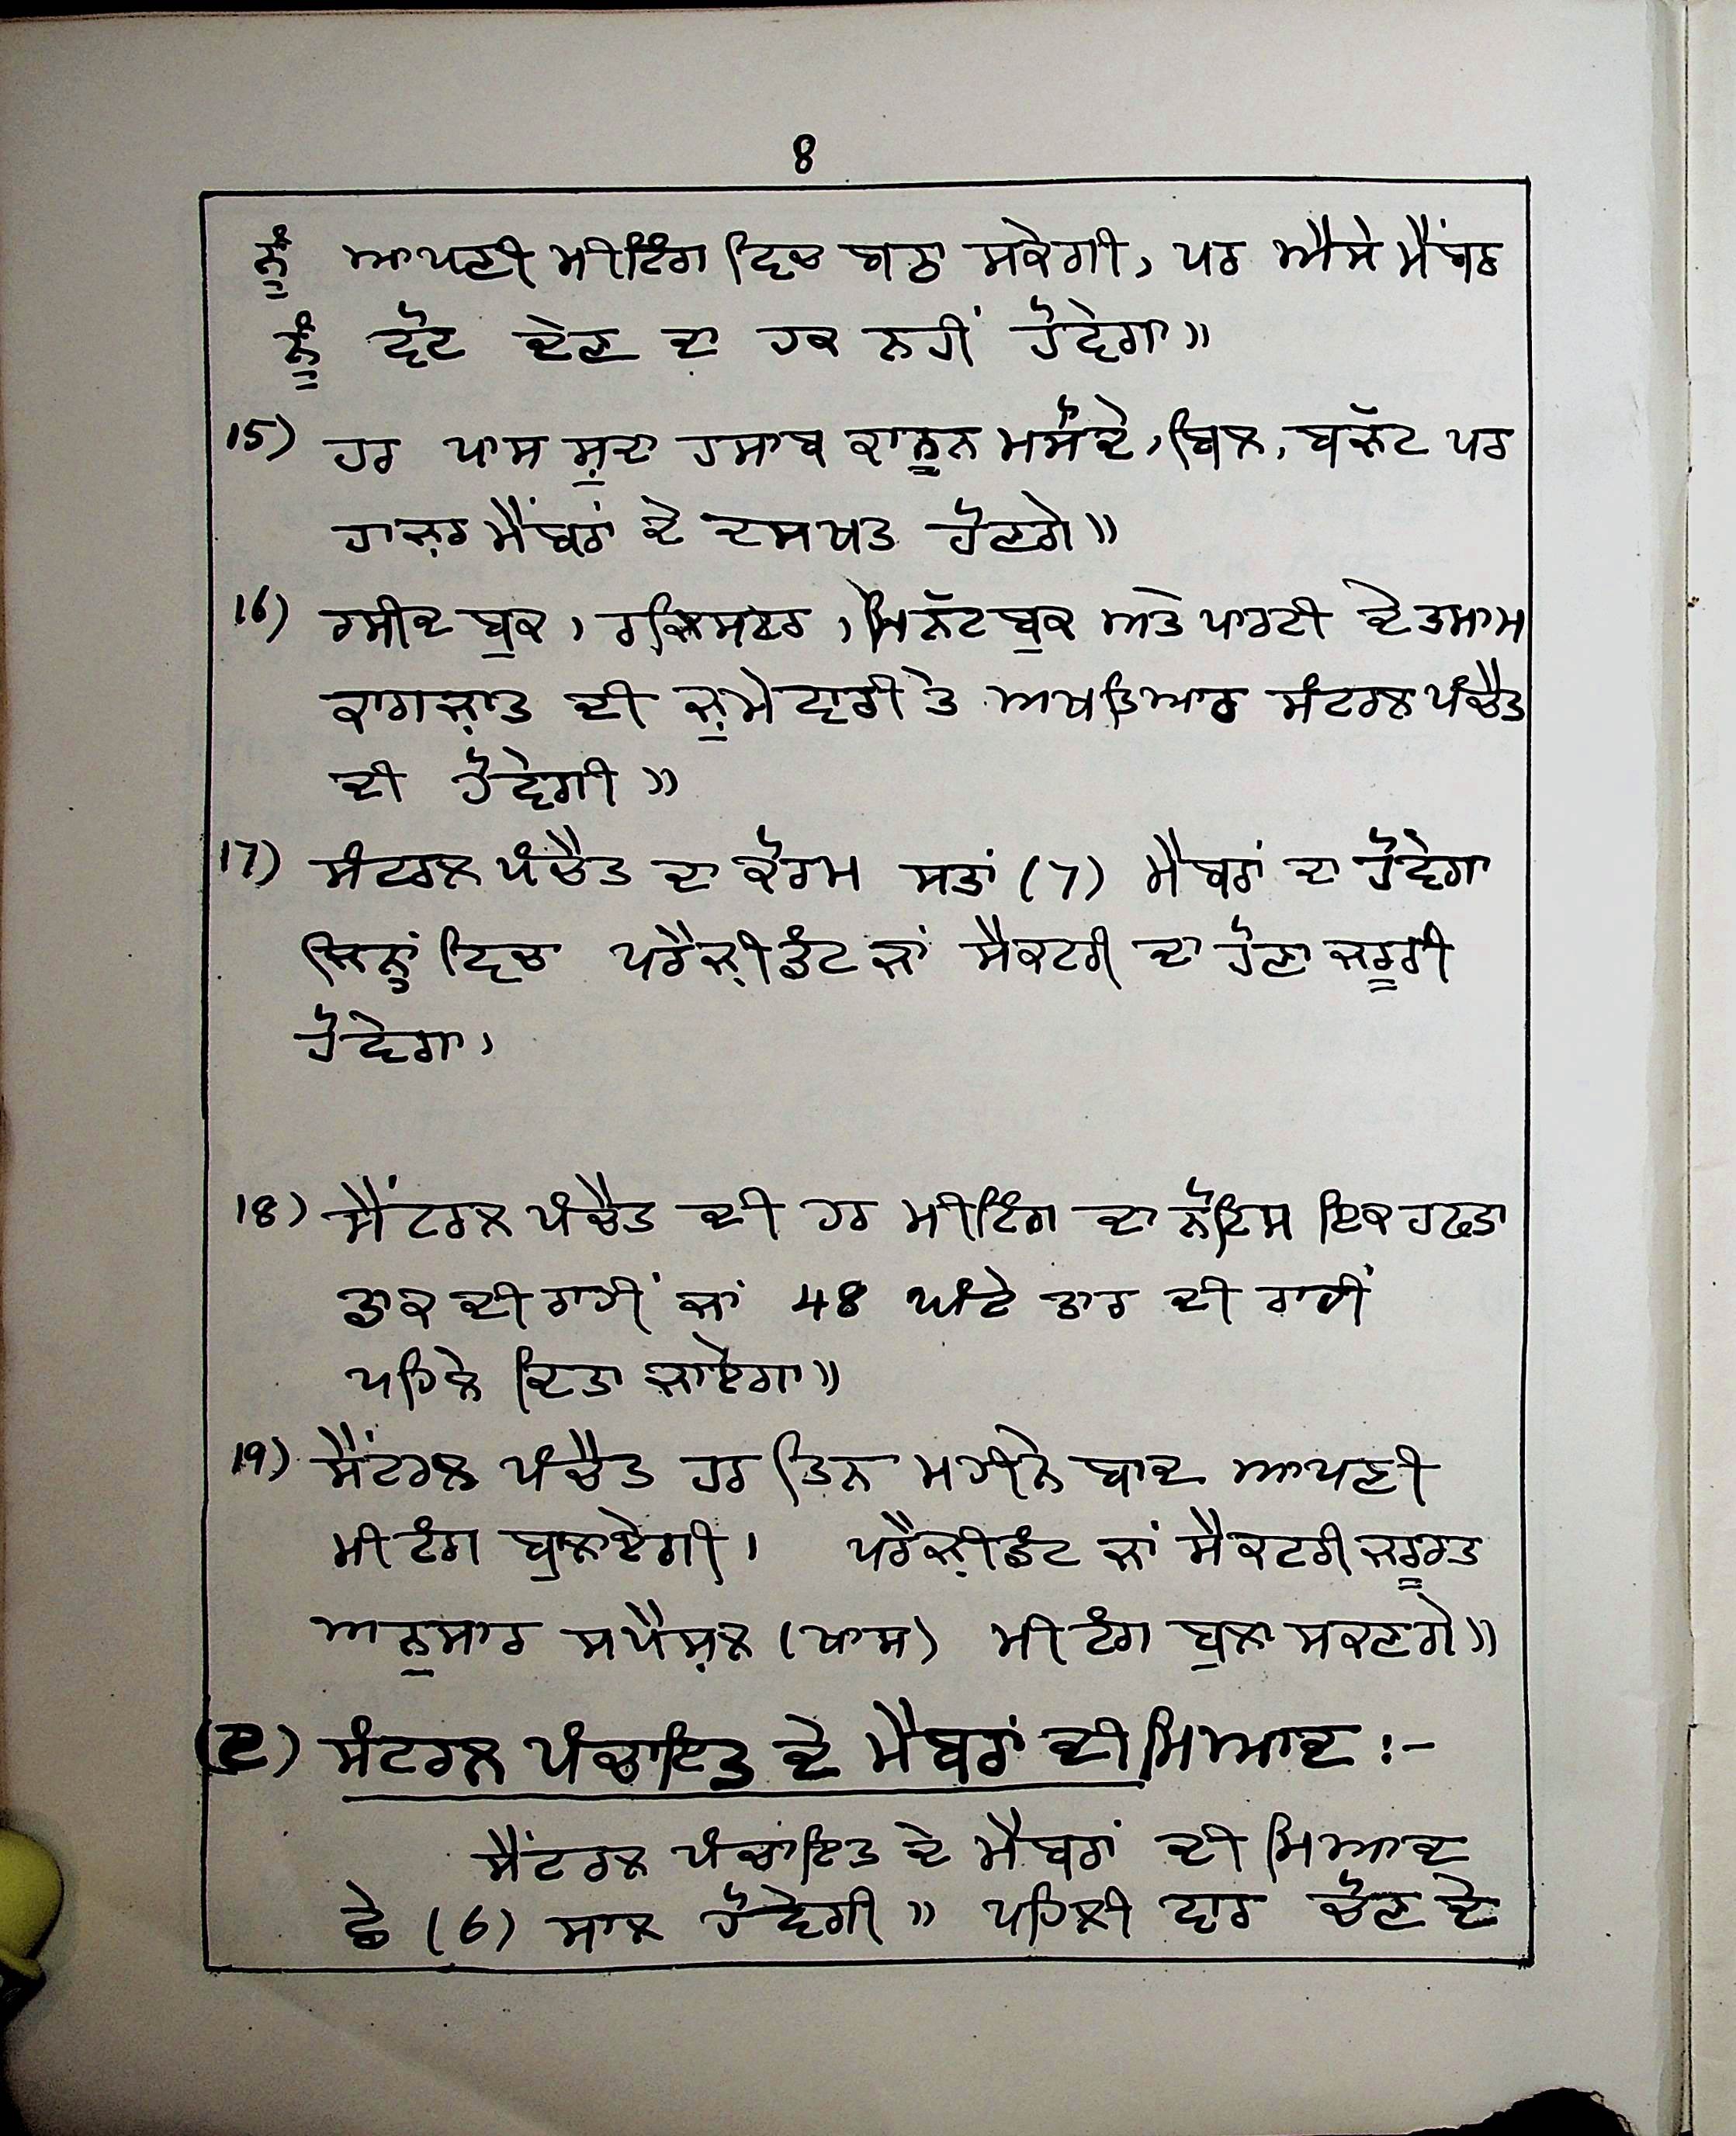 8
ਨੂੰ ਆਪਣੀ ਮੀਟਿੰਗ ਵਿਚ ਬਠਾ ਸਕੇਗੀ, ਪਰ ਐਸੇ ਮੈਂਬਰ
ਨੂੰ ਵੋਟ ਦੇਣ ਦਾ ਹਕ ਨਹੀਂ ਹੋਵੇਗਾ॥
15) ਹਰ ਪਾਸ ਸ਼ੁਦਾ ਹਸਾਬ ਕਾਨੂਨ ਮਸੌਦੇ, ਬਿਲ, ਬਜੱਟ ਪਰ
ਹਾਜ਼ਰ ਮੈਂਬਰਾਂ ਦੇ ਦਸਖਤ ਹੋਣਗੇ॥
16) ਰਸੀਦ ਬੁਕ, ਰਜਿਸਟਰ, ਮਿਨੱਟ ਬੁਕ ਅਤੇ ਪਾਰਟੀ ਦੇ ਤਮਾਮ
ਕਾਗਜ਼ਾਤ ਦੀ ਜ਼ੁਮੇਵਾਰੀ ਤੇ ਅਖਤਿਆਰ ਸੰਟਰਲ ਪੰਚੈਤ
ਦੀ ਹੋਵੇਗੀ॥
17) ਸੰਟਰਲ ਪੰਚੈਤ ਦਾ ਕੋਰਮ ਸਤਾਂ (7) ਮੈਬਰਾਂ ਦਾ ਹੋਵੇਗਾ
ਜਿਨ੍ਹਾਂ ਵਿਚਾ ਪਰੈਜ਼ੀਡੰਟ ਜਾਂ ਸੈਕਟਰੀ ਦਾ ਹੋਣਾ ਜਰੂਰੀ
ਹੋਵੇਗਾ,
18) ਸੈਂਟਰਲ ਪੰਚੈਤ ਦੀ ਹਰ ਮੀਟਿੰਗ ਦਾ ਨੋਟਿਸ ਇਕ ਹਫਤਾ
ਡਾਕ ਦੀ ਰਾਹੀਂ ਜਾਂ 48 ਘੰਟੇ ਤਾਰ ਦੀ ਰਾਹੀਂ
ਪਹਿਲੇ ਦਿਤਾ ਜਾਏਗਾ॥
19) ਸੈਂਟਰਲ ਪੰਚੈਤ ਹਰ ਤਿਨ ਮਹੀਨੇ ਬਾਦ ਆਪਣੀ
ਮੀਟੰਗ ਬੁਲਾਏਗੀ। ਪਰੈਜ਼ੀਡੰਟ ਜਾਂ ਸੈਕਟਰੀ ਜਰੂਰਤ
ਅਨੁਸਾਰ ਸਪੈਸ਼ਲ (ਖਾਸ) ਮੀਟੰਗ ਬੁਲਾ ਸਕਣਗੇ॥
(ੲ) ਸੰਟਰਲ ਪੰਚਾਇਤ ਦੇ ਮੈਬਰਾਂ ਦੀ ਮਿਆਦ :-
ਸੈਂਟਰਲ ਪੰਚਾਇਤ ਦੇ ਮੈਬਰਾਂ ਦੀ ਮਿਆਦ
ਛੇ (6) ਸਾਲ ਹੋਵੇਗੀ॥ ਪਹਿਲੀ ਵਾਰ ਚੋਣ ਦੇ